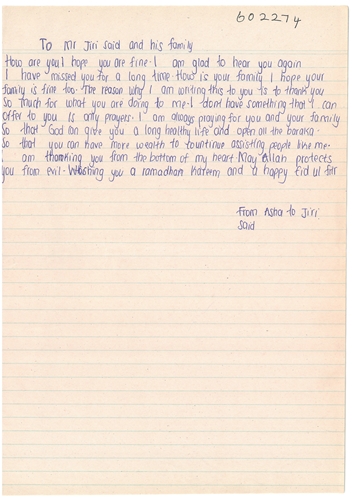 602274
To Mr Jiri Said and his family
How are you I hope you are fine. I am glad to hear you again
I have missed you for a long time. How is your family I hope your
family is fine too. The reason why I am writing this to you is to thank you
So much for what you are doing to me. I dont have something that I can
offer to you Is only prayers. I am always praying for you and your family
So that God can give you a long healthy life and open all the baraka
So that you can have more wealth to countinue assisting people like me.
I am thanking you from the bottom of my heart. May Allah protects
you from evil. Weshing you a ramadham kareem and a happy Eid ul fitr
From Asha to Jiri
Said